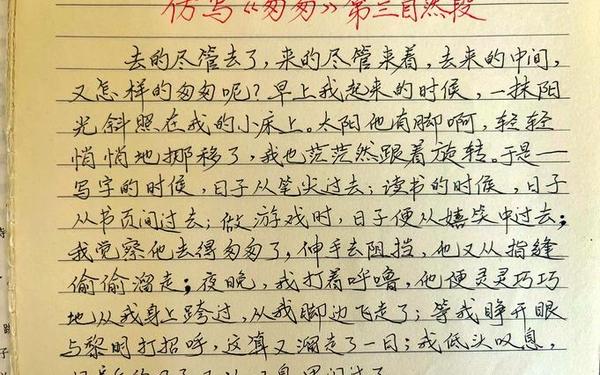 仿写《匆匆》第三自然段
去的尽管去了，来的尽管来着，去来的中间，
又怎样的匆匆呢？早上我起来的时候，一抹阳
光斜照在我的小床上。太阳他有脚啊，轻轻
悄悄地挪移了，我也茫茫然跟着旋转。于是——
写字的时候，日子从笔尖过去；读书的时候，日子
从书页间过去；做游戏时，日子便从嬉笑中过去；
我觉察他去得匆匆了，伸手去阻挡，他又从指缝
偷偷溜走；夜晚，我打着呼噜，他便灵灵巧巧
地从我身上跨过，从我脚边飞走了；等我睁开眼
与黎明打招呼，这算又溜走了一日；我低头叹息，